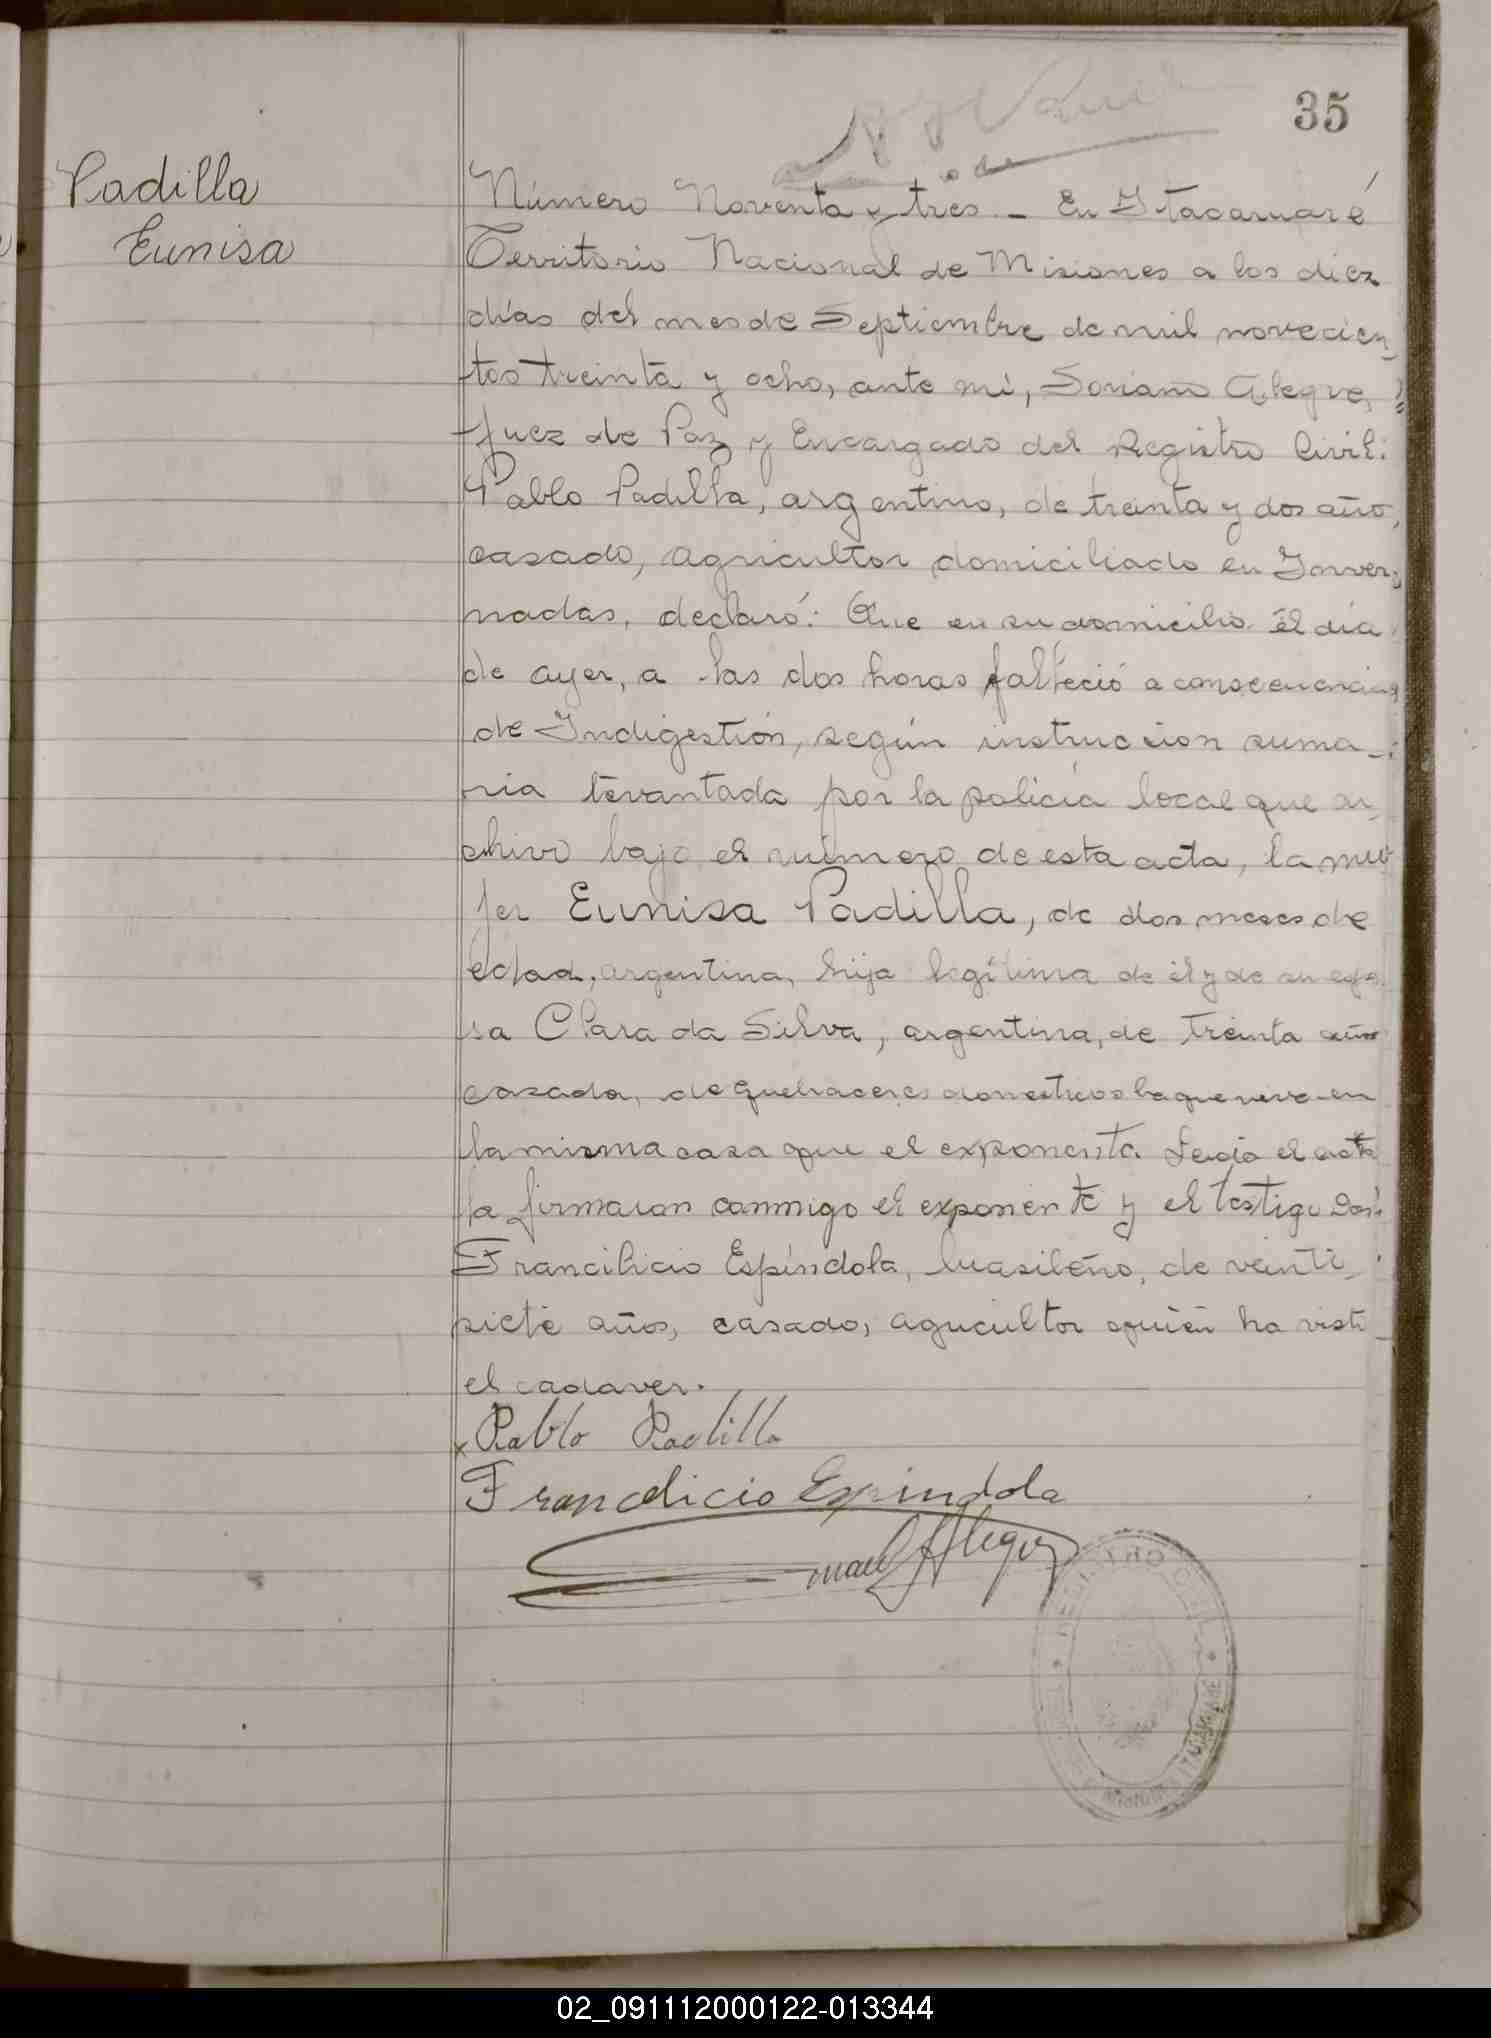 35
Padilla
Eunisa
Número Noventa y tres. - En Itacaruaré
Territorio Nacional de Misiones a los diez
días del mes de Septiembre de mil novecien_
tos treinta y ocho, ante mí, Soriano Alegre,
Juez de Paz y Encargado del Registro Civil:
Pablo Padilla, argentino, de treinta y dos año,
casado, agricultor domiciliado en Inver_
nadas, declaró: Que en su domicilio él día
de ayer, a las dos horas falleció a consecuencia
de Indigestión, según instruccion suma_
ria levantada por la policía local que ar_
chivo bajo el número de esta acta, la mu
jer Eunisa Padilla, de dos meses de
edad, argentina, hija legítima de él y de su espo
sa Clara da Silva, argentina, de treinta años
casada, de quehaceres domesticos la que vive en
la misma casa que el exponente. Leida el acta
la firmaron conmigo el exponente y el testigo Don
Francilicio Espíndola, brasileño, de veinti_
siete años, casado, agricultor quién ha visto
el cadaver.
x Pablo Padilla
Francelicio Espindola
Alegre
REGISTRO CIVIL
ITACARUARÉ
02_091112000122-013344